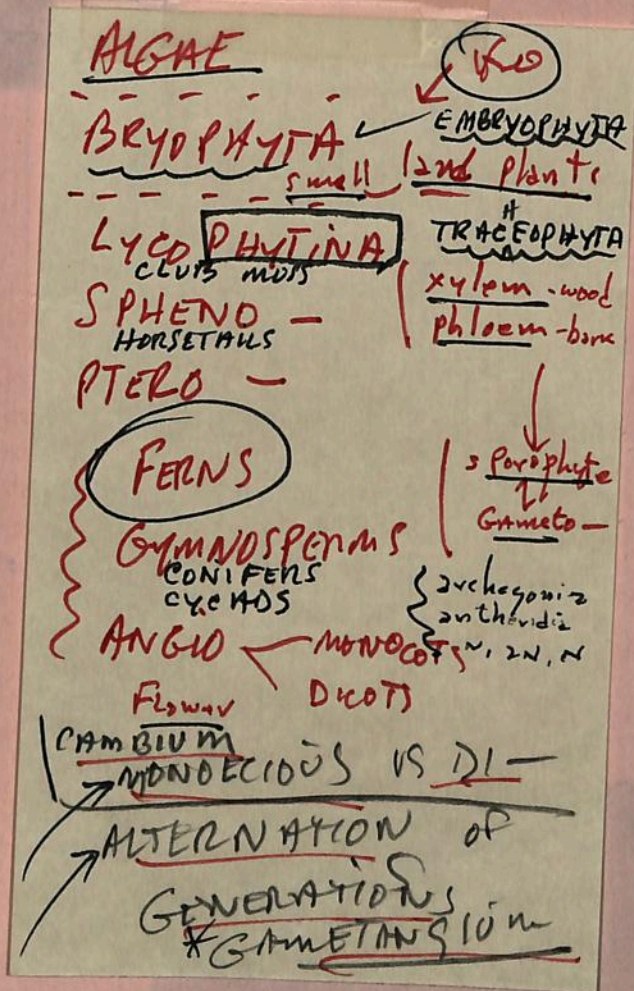 ALGAE
BRYOPHYTA
EMBRYOPHYTA
small land plants
LYCO PHYTINA
CLUB MOSS
TRACEOPHYTA
H
xylem - wood
phloem - bark
SPHENO -
HORSETAILS
PTERO -
FERNS
sporophyte
GAMETO -
GYMNOSPERMS
CONIFERS
CYCADS
archegonia
antheridia
N, 2N, N
ANGIO
MONOCOTS
DICOTS
Flower
CAMBIUM
MONOECIOUS VS DI -
ALTERNATION of
GENERATIONS
* GAMETANGIUM